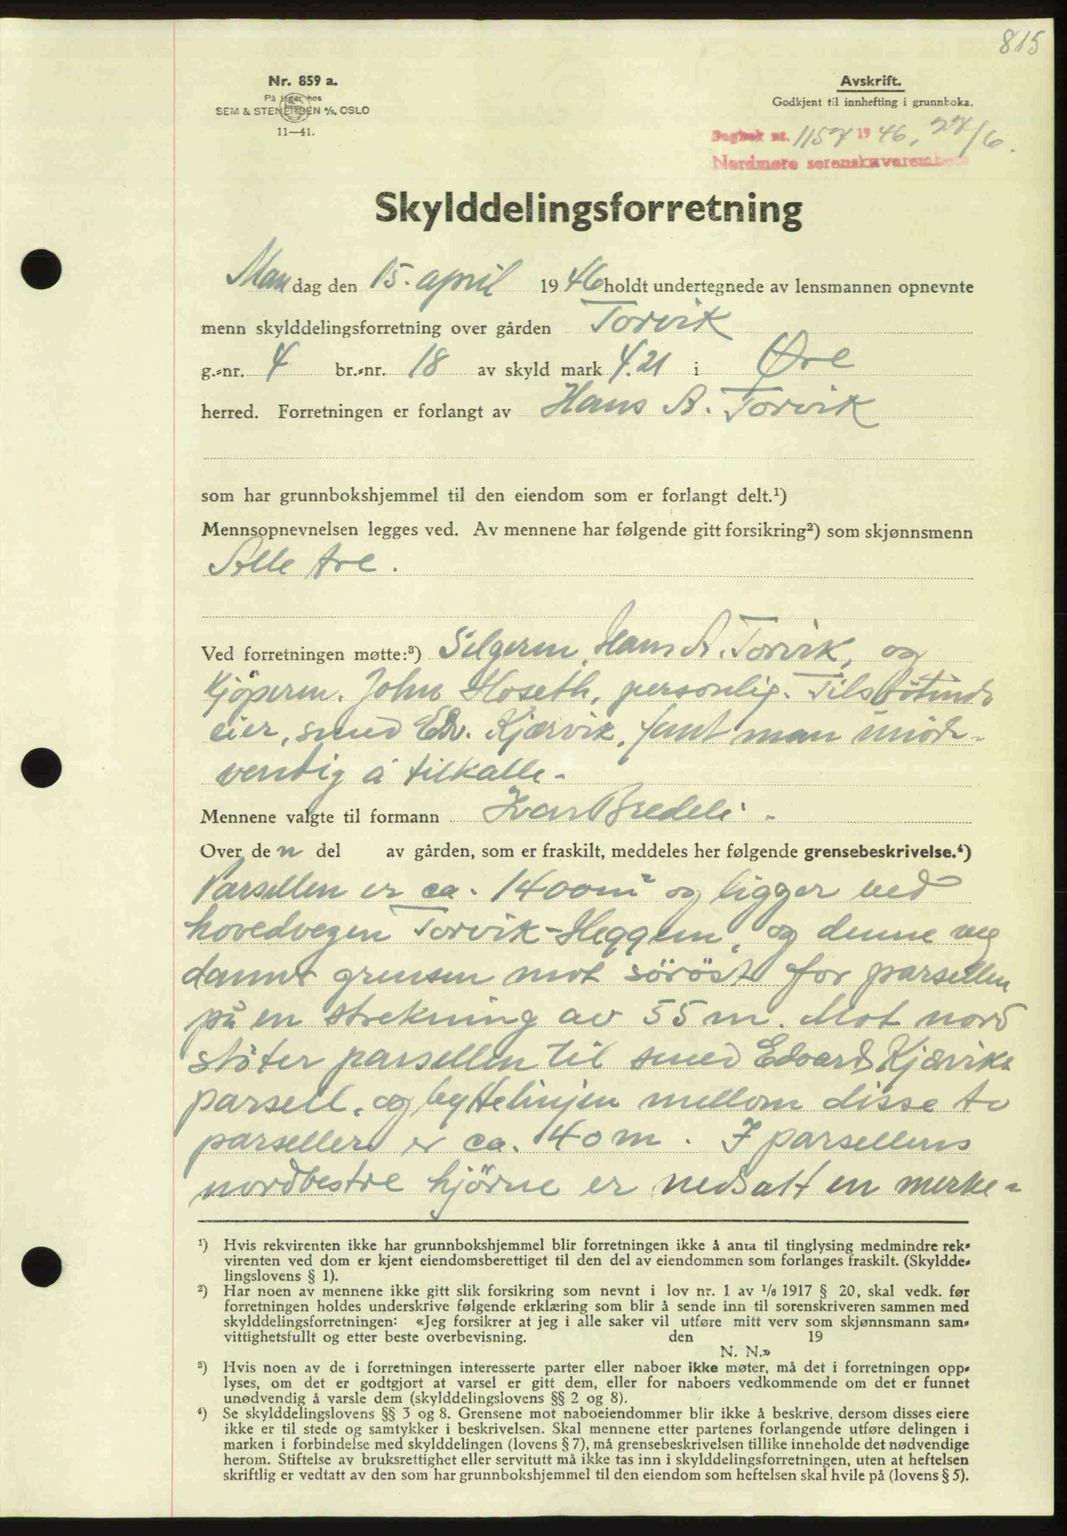 815
Nr. 859 a.
På lager hos
SEM & STENERSEN A/S, OSLO
11—41.
Avskrift.
Godkjent til innhefting i grunnboka.
Dagbok nr. 1157 1946, 27/6.
Nordmøre sorenskriverembete
Skylddelingsforretning
Mandag den 15. april 1946 holdt undertegnede av lensmannen opnevnte
menn skylddelingsforretning over gården Torvik
g.-nr. 4 br.-nr. 18 av skyld mark 4.21 i Øre
herred. Forretningen er forlangt av Hans A. Torvik
som har grunnbokshjemmel til den eiendom som er forlangt delt.¹)
Mennsopnevnelsen legges ved. Av mennene har følgende gitt forsikring²) som skjønnsmenn
Alle tre.
Ved forretningen møtte:³) Selgeren, Hans A. Torvik, og
kjöperen. John Hoseth, personlig. Tilstötende
eier, smed Edv. Kjærvik, fant man unöd-
vendig å tilkalle.
Mennene valgte til formann Ivar Bredeli.
Over den del av gården, som er fraskilt, meddeles her følgende grensebeskrivelse.⁴)
Parsellen er ca. 1400 m² og ligger ved
hovedvegen Torvik-Heggem, og denne veg
danner grensen mot söröst for parsellen
på en strekning av 55 m. Mot nord
stöter parsellen til smed Edvard Kjærviks
parsell, og byttelinjen mellom disse to
parseller er ca. 40 m. I parsellens
nordvestre hjörne er nedsatt en merke-
¹) Hvis rekvirenten ikke har grunnbokshjemmel blir forretningen ikke å anta til tinglysing medmindre rek-
virenten ved dom er kjent eiendomsberettiget til den del av eiendommen som forlanges fraskilt. (Skyldde-
lingslovens § 1).
²) Har noen av mennene ikke gitt slik forsikring som nevnt i lov nr. 1 av 1/6 1917 § 20, skal vedk. før
forretningen holdes underskrive følgende erklæring som blir å sende inn til sorenskriveren sammen med
skylddelingsforretningen: «Jeg forsikrer at jeg i alle saker vil utføre mitt verv som skjønnsmann sam-
vittighetsfullt og etter beste overbevisning. den 19
N. N.»
³) Hvis noen av de i forretningen interesserte parter eller naboer ikke møter, må det i forretningen opp-
lyses, om det er godtgjort at varsel er gitt dem, eller for naboers vedkommende om det er funnet
unødvendig å varsle dem (skylddelingslovens §§ 2 og 8).
⁴) Se skylddelingslovens §§ 3 og 8. Grensene mot naboeiendommer blir ikke å beskrive, dersom disses eiere
ikke er til stede og samtykker i beskrivelsen. Skal mennene etter partenes forlangende utføre delingen i
marken i forbindelse med skylddelingen (lovens § 7), må grensebeskrivelsen tillike inneholde det nødvendige
herom. Stiftelse av bruksrettighet eller servitutt må ikke tas inn i skylddelingsforretningen, uten at heftelsen
skriftlig er vedtatt av den som har grunnbokshjemmel til den eiendom som heftelsen skal hvile på (lovens § 5).